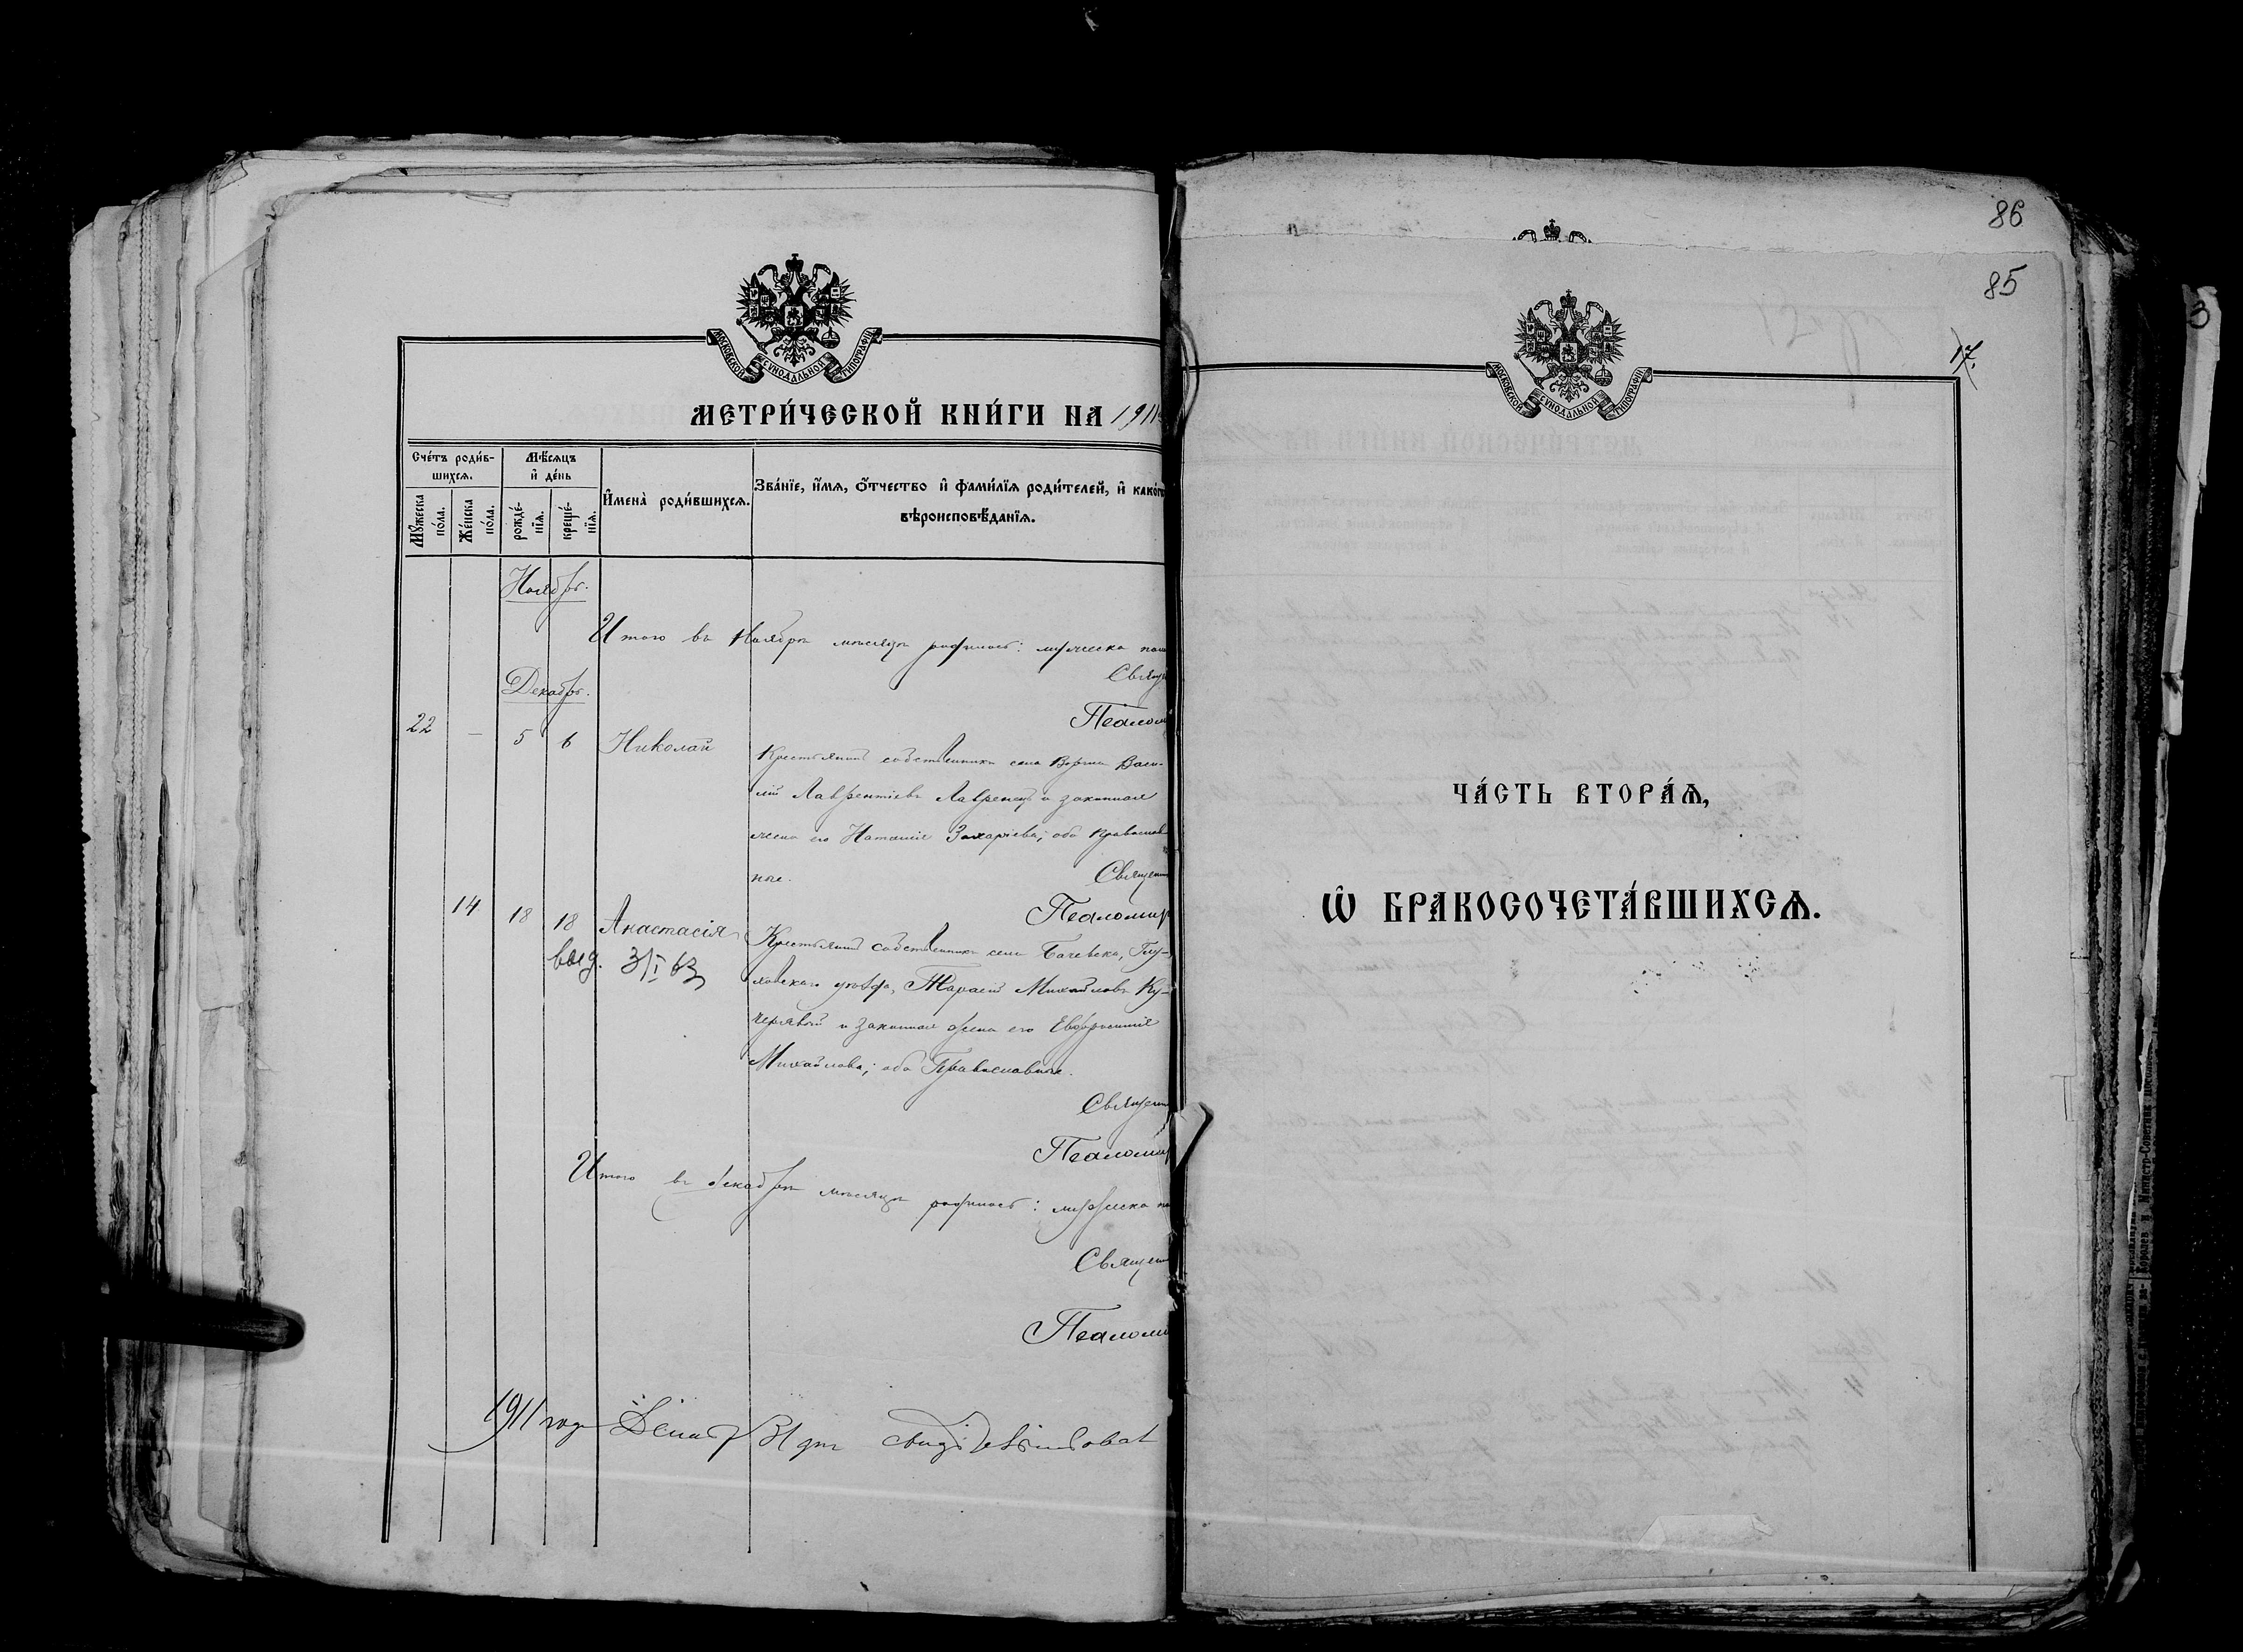 МОСКОВСКОЙ СУНОДАЛЬНОЙ ТИПОГРАФІИ
МЕТРИ́ЧЕСКОЙ КНИ́ГИ НА 1911
Сче́тъ роди́в-
шихсѧ.
Мꙋ́жеска по́ла.
Же́нска по́ла.
Мѣ́сѧцъ
и҆ де́нь
рожде́-
нїѧ.
креще́-
нїѧ.
И҆мена̀ роди́вшихсѧ.
Зва́нїе, и҆́мѧ, ѻ҆́тчество и҆ фами́лїѧ роди́телей, и҆ како́гѡ
вѣроисповѣ́данїѧ.
Ноябрь.
Итого въ Ноябрѣ мѣсяцѣ родилось: мужеска пола
Свящ
Декабрь.
Псалом
22 — 5 6 Николай
Крестьянинъ собственникъ села Ворг Васи-
лій Лаврентіевъ Лавренец и законная
жена его Наталія Захаріева; оба православ-
ные.
Священ
Псаломщ
14 18 18 Анастасія
выд. 3/I 63
Крестьянинъ собственникъ села Бачевска, Глу-
ховскаго уѣзда, Тарасій Михайловъ Ку-
черявый и законная жена его Евфросинія
Михайлова; оба Православные.
Священ
Псаломщ
Итого въ декабрѣ мѣсяцѣ родилось: мужеска по
Священ
Псаломщ
1911 года 31 дня
86
85
17.
МОСКОВСКОЙ СУНОДАЛЬНОЙ ТИПОГРАФІИ
ЧА́СТЬ ВТОРА́Ѧ,
Ѡ҆ БРАКОСОЧЕТА́ВШИХСѦ.
3